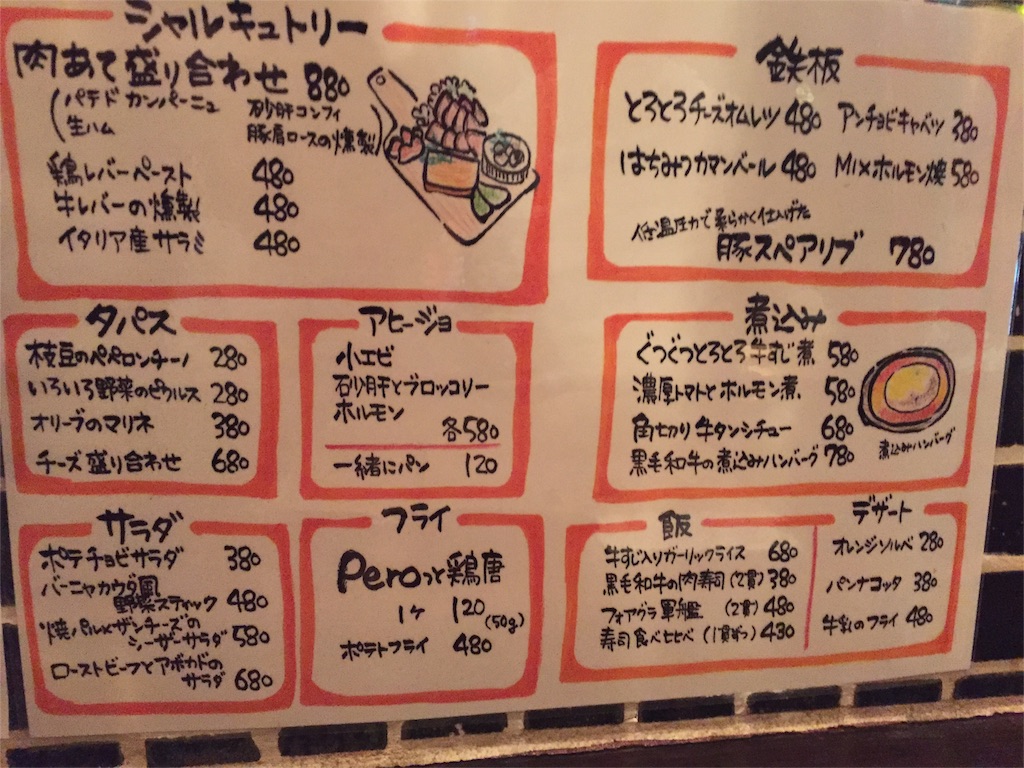 シャルキュトリー
肉あて盛り合わせ 880
(パテド カンパーニュ 砂肝コンフィ
生ハム 豚肩ロースの燻製)
鶏レバーペースト 480
牛レバーの燻製 480
イタリア産サラミ 480
鉄板
とろとろチーズオムレツ 480 アンチョビキャベツ 380
はちみつカマンベール 480 Mixホルモン焼 580
低温圧力で柔らかく仕上げた
豚スペアリブ 780
タパス
枝豆のペペロンチーノ 280
いろいろ野菜のピクルス 280
オリーブのマリネ 380
チーズ盛り合わせ 680
アヒージョ
小エビ
砂肝とブロッコリー
ホルモン
各580
一緒にパン 120
煮込み
ぐつぐつとろとろ牛すじ煮 580
濃厚トマトとホルモン煮 580
角切り牛タンシチュー 680
黒毛和牛の煮込みハンバーグ 780
煮込みハンバーグ
サラダ
ポテチョビサラダ 380
バーニャカウダ風
野菜スティック 480
焼パルメザンチーズの
シーザーサラダ 580
ローストビーフとアボカドの
サラダ 680
フライ
Peroっと鶏唐
1ケ 120 (50g)
ポテトフライ 480
飯
牛すじ入りガーリックライス 680
黒毛和牛の肉寿司 (2貫) 380
フォアグラ軍艦 (2貫) 480
寿司食べ比べ (1貫ずつ) 430
デザート
オレンジソルベ 280
パンナコッタ 380
牛乳のフライ 480